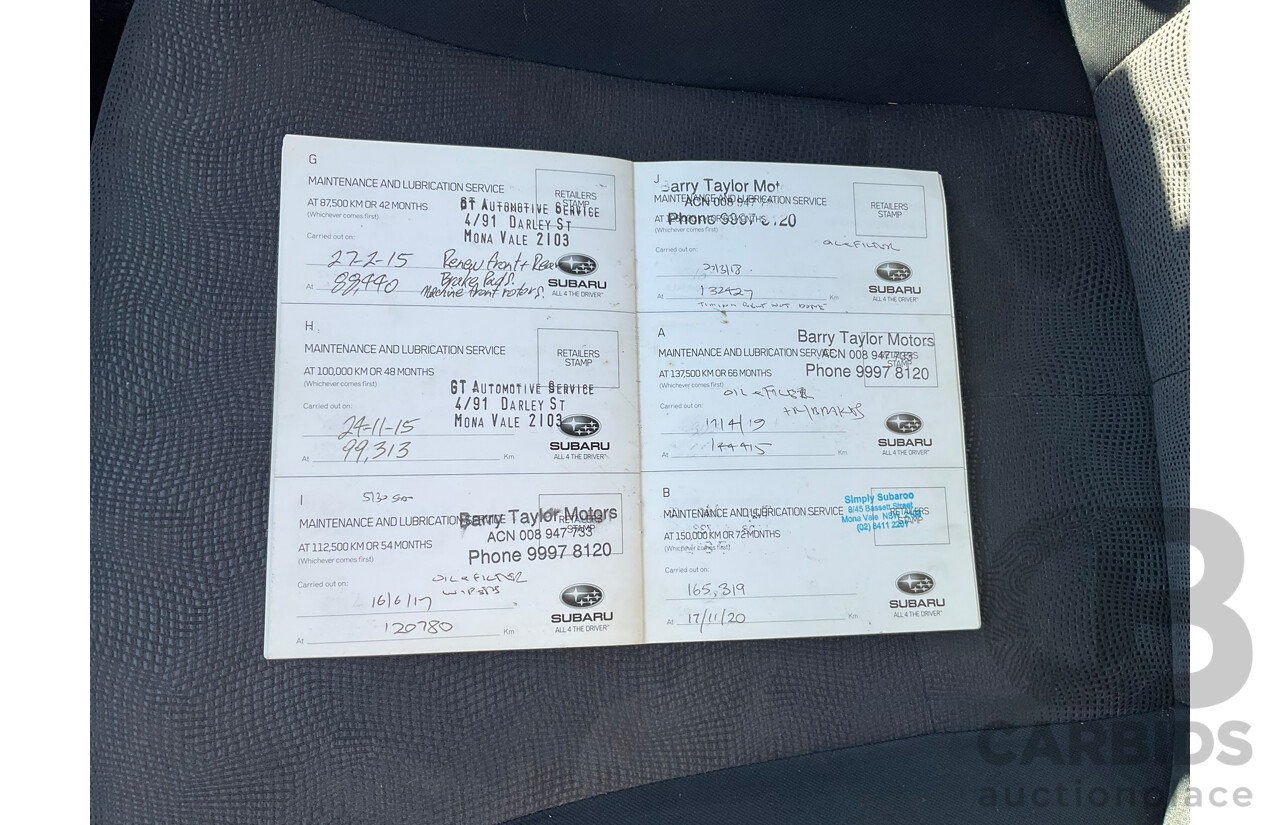 G
MAINTENANCE AND LUBRICATION SERVICE
RETAILERS
STAMP
AT 87,500 KM OR 42 MONTHS
(Whichever comes first)
GT AUTOMOTIVE SERVICE
4/91 DARLEY ST
MONA VALE 2103
Carried out on:
27-2-15 Renew front + Rear
Brake Pads.
Machine front rotors.
At 88,440
SUBARU
ALL 4 THE DRIVER
H
MAINTENANCE AND LUBRICATION SERVICE
RETAILERS
STAMP
AT 100,000 KM OR 48 MONTHS
(Whichever comes first)
GT AUTOMOTIVE SERVICE
4/91 DARLEY ST
MONA VALE 2103
Carried out on:
24-11-15
At 99,313 Km
SUBARU
ALL 4 THE DRIVER
I
MAINTENANCE AND LUBRICATION SERVICE
RETAILERS
STAMP
Barry Taylor Motors
ACN 008 947 733
Phone 9997 8120
AT 112,500 KM OR 54 MONTHS
(Whichever comes first)
Carried out on:
OIL & FILTER
WIPERS
16/6/17
At 120780 Km
SUBARU
ALL 4 THE DRIVER
J
Barry Taylor Mot
ACN 008 947 7
Phone 9997 8120
MAINTENANCE AND LUBRICATION SERVICE
RETAILERS
STAMP
(Whichever comes first)
Carried out on:
OIL & FILTER
27/3/18
At 132427 Km
TIMING BELT NOT DONE
SUBARU
ALL 4 THE DRIVER
A
Barry Taylor Motors
ACN 008 947 733
Phone 9997 8120
MAINTENANCE AND LUBRICATION SERVICE
RETAILERS
STAMP
AT 137,500 KM OR 66 MONTHS
(Whichever comes first)
OIL & FILTER
+R/BRAKES
Carried out on:
17/4/19
At 144415 Km
SUBARU
ALL 4 THE DRIVER
B
MAINTENANCE AND LUBRICATION SERVICE
RETAILERS
STAMP
Simply Subaroo
8/45 Bassett Street
Mona Vale NSW 2103
(02) 8411 2251
AT 150,000 KM OR 72 MONTHS
(Whichever comes first)
Carried out on:
165,319
At 17/11/20 Km
SUBARU
ALL 4 THE DRIVER
CARBIDS
auctionplace